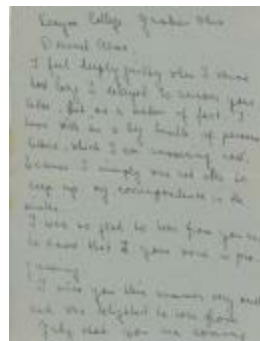 Kenyon College Gambier Ohio
Dearest
I feel deeply guilty when I
how long I delayed to answer your
letter. But as a matter of fact I
have with me a big bundle of personal
letters which I am answering now,
because I simply was not able to
keep up my correspondence in the
I was so glad to hear from you
to know that your voice is
I miss you this summer very much
and was delighted to hear from
that you are coming